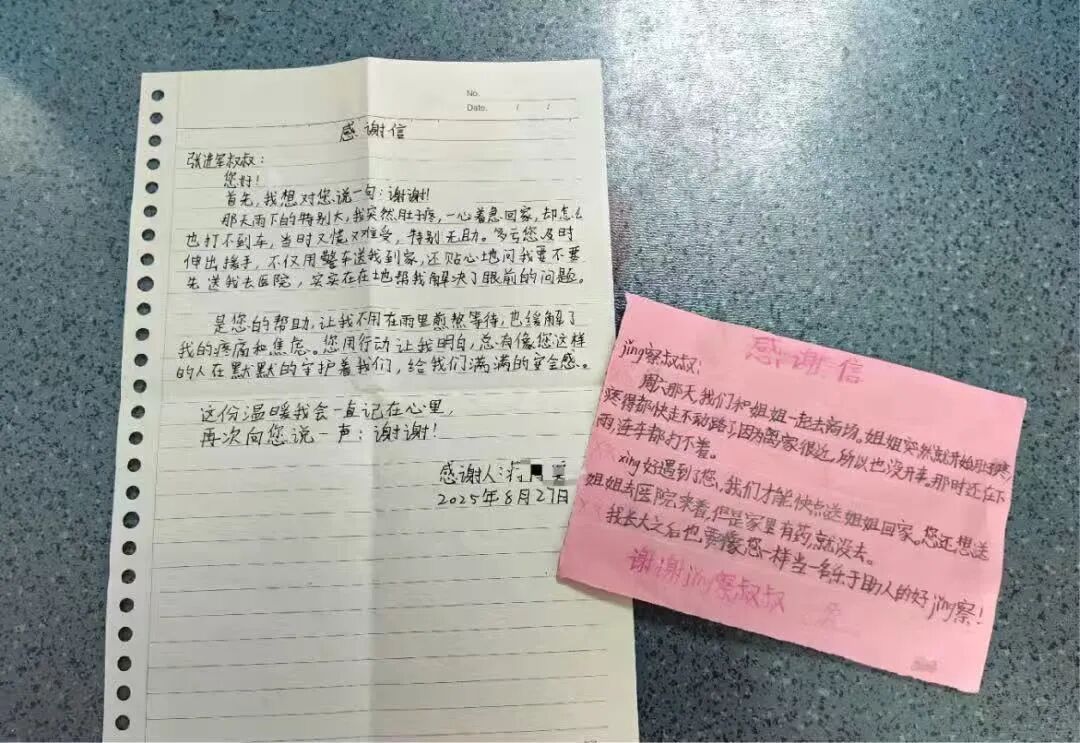 No.
Date. / /
感谢信
张进军叔叔：
您好！
首先，我想对您说一句：谢谢！
那天雨下的特别大，我突然肚子疼，一心着急回家，却怎么
也打不到车，当时又慌又难受，特别无助。多亏您及时
伸出援手，不仅用警车送我到家，还贴心地问我要不要
先送我去医院，实实在在地帮我解决了眼前的问题。
是您的帮助，让我不用在雨里煎熬等待，也缓解了
我的疼痛和焦虑。您用行动让我明白，总有像您这样
的人在默默的守护着我们，给我们满满的安全感。
这份温暖我会一直记在心里，
再次向您说一声：谢谢！
感谢人：
2025年8月27日
感谢信
jǐng察叔叔：
周六那天，我们和姐姐一起去商场。姐姐突然就开始肚子疼，
疼得都快走不动路了，因为离家很近，所以也没开车。那时还在下
雨，连车都打不着。
xìng好遇到了您，我们才能快点送姐姐回家。您还想送
姐姐去医院来着，但是家里有药，就没去。
我长大之后也要像您一样当一名乐于助人的好jǐng察！
谢谢jǐng察叔叔